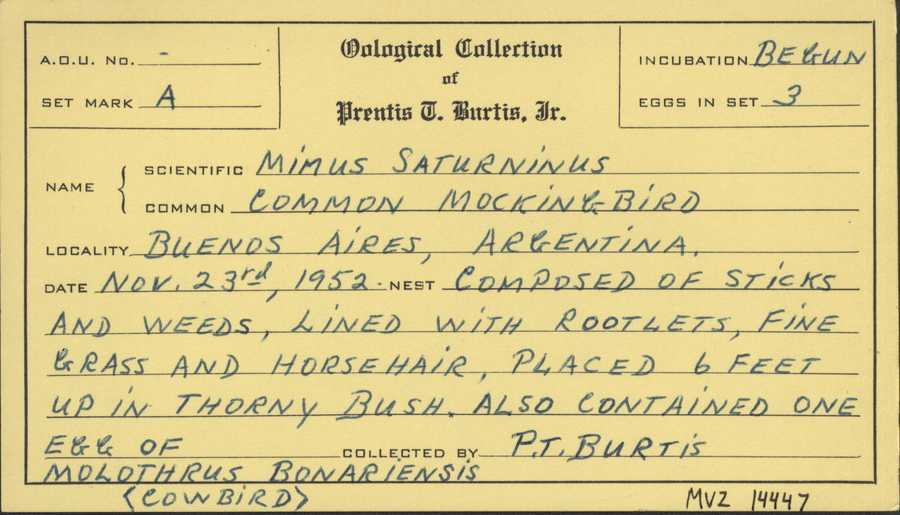 A.O.U. No. -
SET MARK A
Oological Collection
of
Prentis T. Burtis, Jr.
INCUBATION BEGUN
EGGS IN SET 3
NAME { SCIENTIFIC MIMUS SATURNINUS
COMMON COMMON MOCKINGBIRD
LOCALITY BUENOS AIRES, ARGENTINA.
DATE NOV. 23rd, 1952. NEST COMPOSED OF STICKS
AND WEEDS, LINED WITH ROOTLETS, FINE
GRASS AND HORSEHAIR, PLACED 6 FEET
UP IN THORNY BUSH. ALSO CONTAINED ONE
EGG OF COLLECTED BY P.T. BURTIS
MOLOTHRUS BONARIENSIS
(COWBIRD)
MVZ 14447